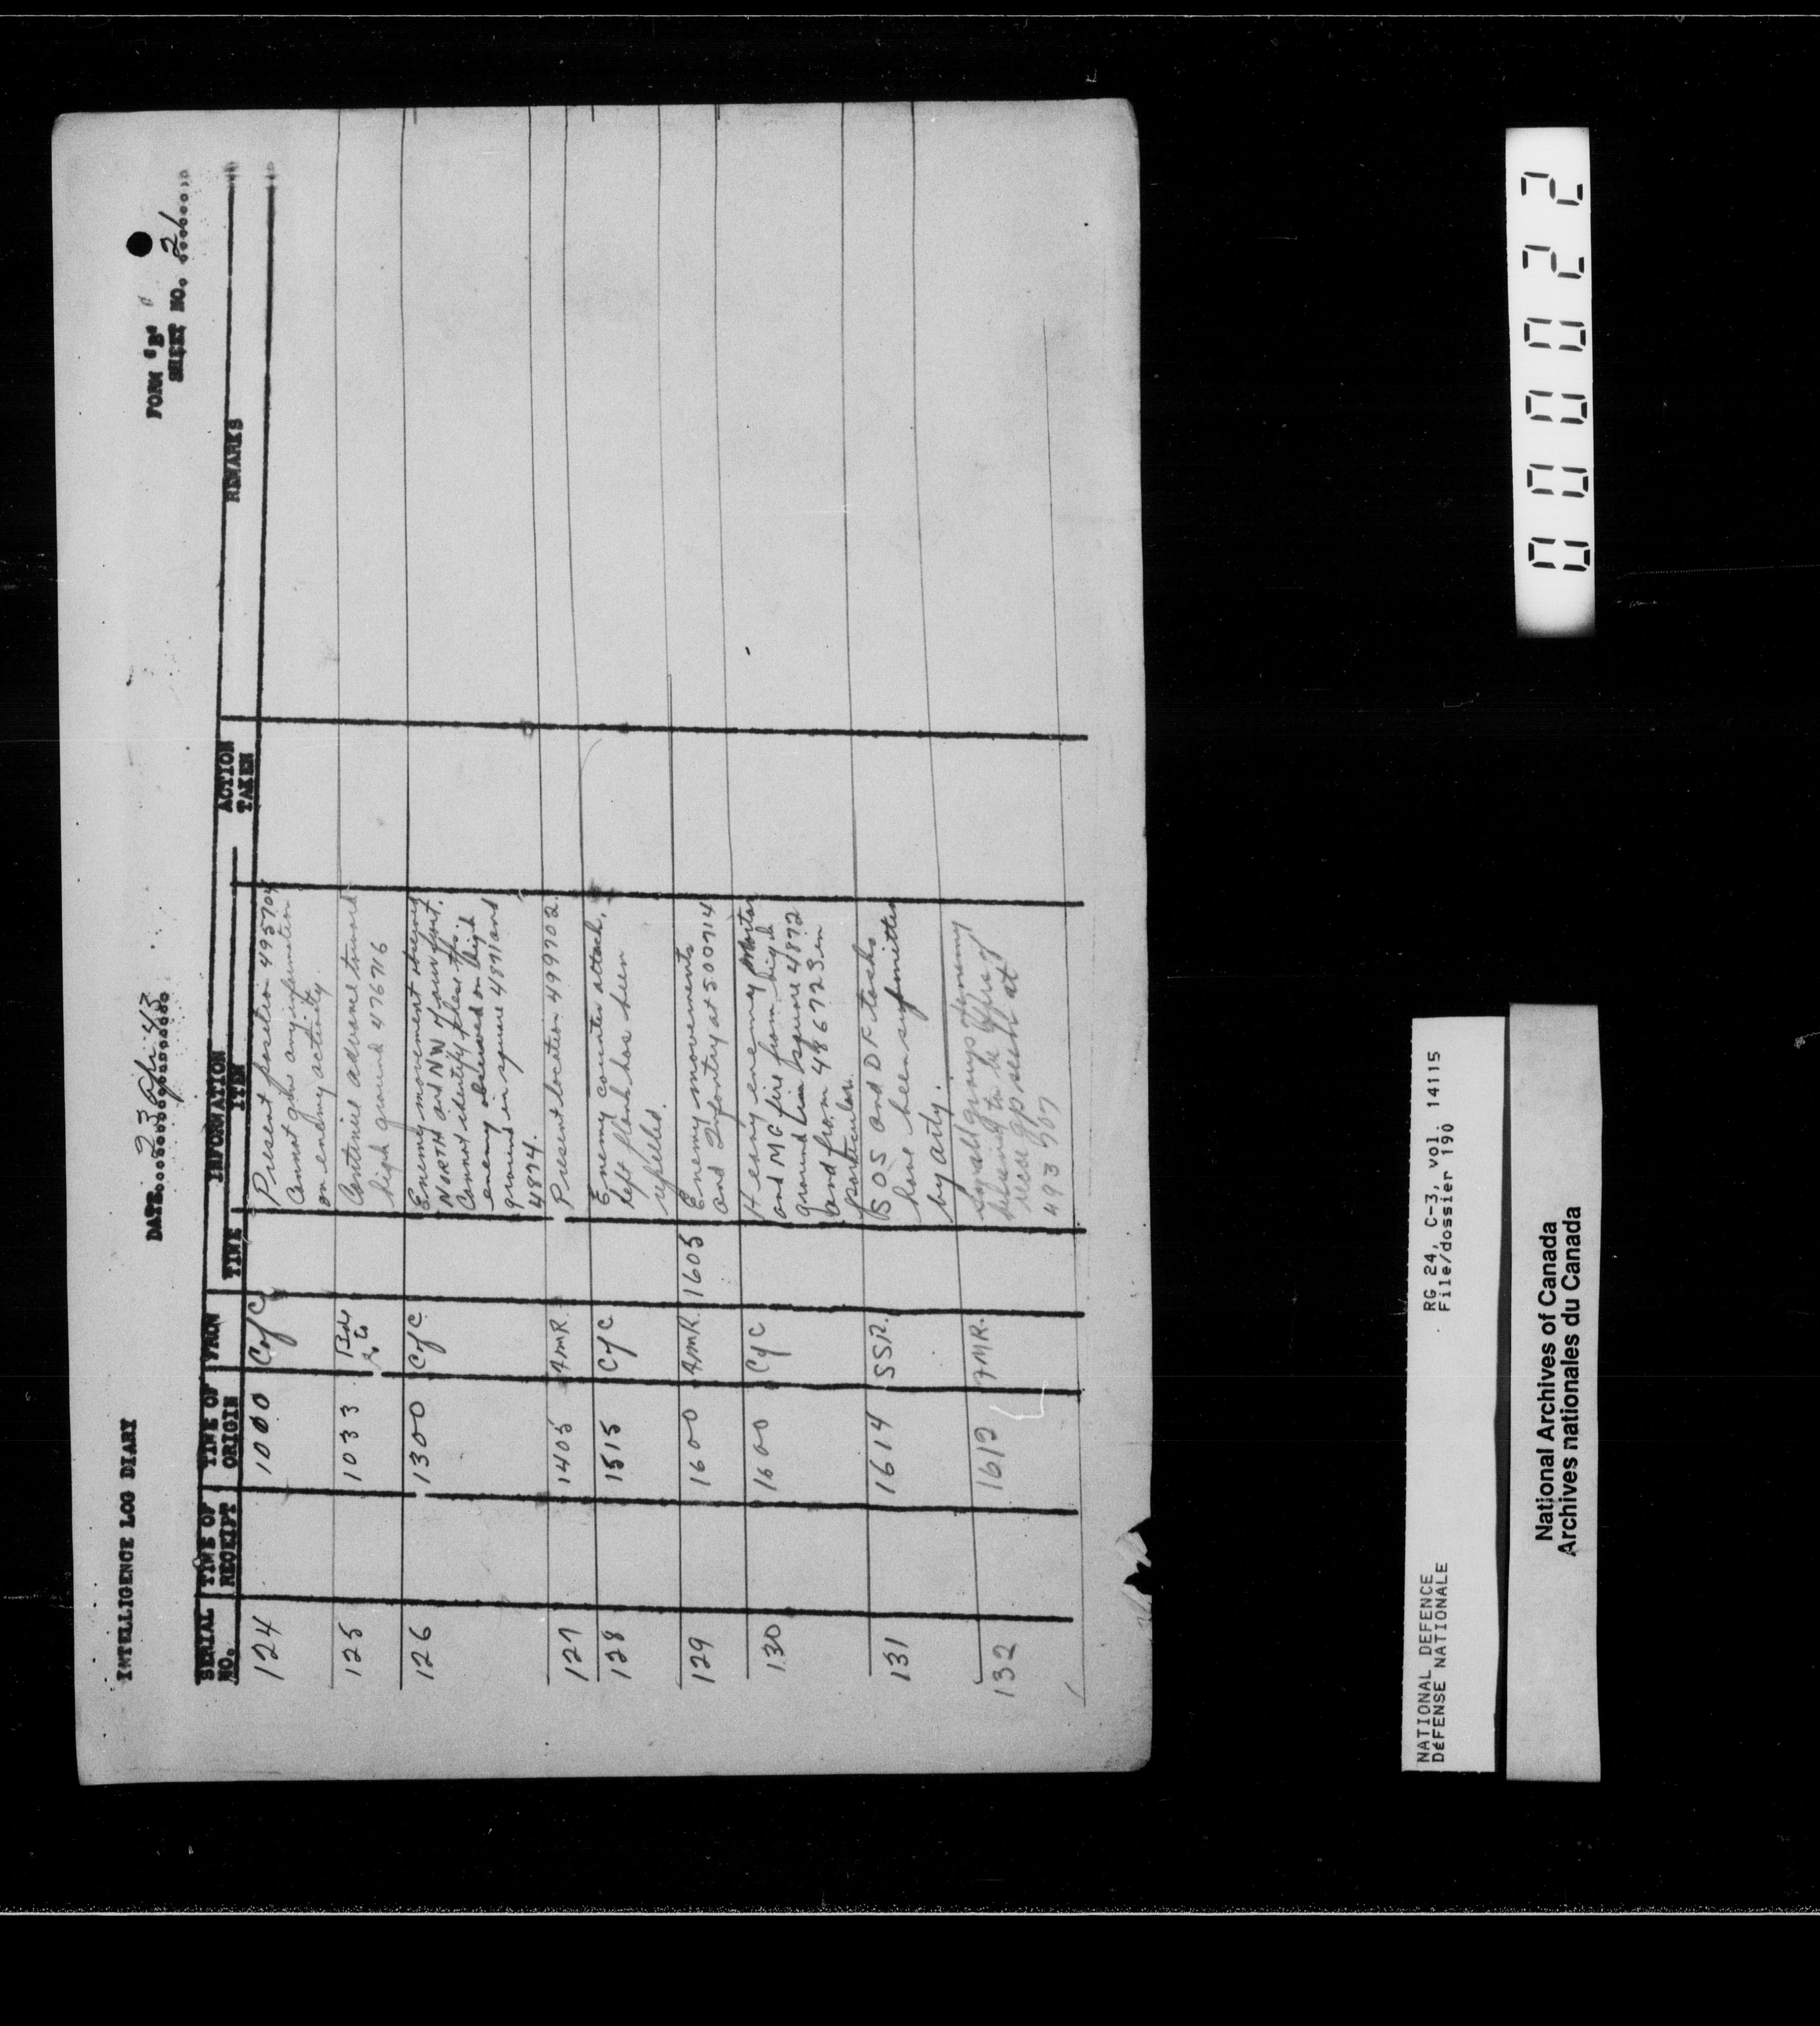 INTELLIGENCE LOG DIARY
FORM "B"
DATE 23 Apr 43
SHEET NO. 21
SERIAL NO. TIME OF RECEIPT TIME OF ORIGIN FROM INFORMATION TIME ITEM ACTION TAKEN REMARKS
124 1000 CyC Present position 495704
Cannot give any information
on enemy activity.
125 1033 Continues advance toward
high ground 476716
126 1300 CyC Enemy movement observed
NORTH and NW of our front.
Cannot identify plens tfs.
enemy observed on high
ground in square 4871 and
4874.
127 1405 4MR. Present location 499702.
128 1515 CyC Enemy counter attack,
left flank has been
repelled.
129 1600 4MR. 1605 Enemy movements
and Infantry at 500714
130 1600 CyC Heavy enemy mortar
and MG fire from high
ground in square 4872
and from 486723 in
particular.
131 1614 SSR. SOS and DF tasks
have been submitted
by arty.
132 1612 7MR. Small groups of enemy
at
493707
000022
NATIONAL DEFENCE RG 24, C-3, vol. 14115
DÉFENSE NATIONALE File/dossier 190
National Archives of Canada
Archives nationales du Canada